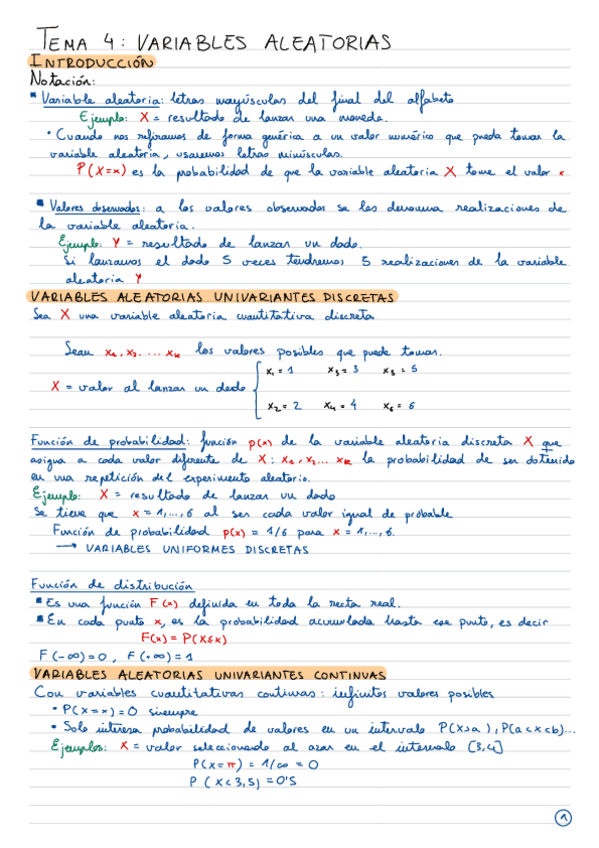 TEMA 4: VARIABLES ALEATORIAS
INTRODUCCIÓN
Notación:
▪ Variable aleatoria: letras mayúsculas del final del alfabeto
Ejemplo: X = resultado de lanzar una moneda.
• Cuando nos refiramos de forma genérica a un valor numérico que pueda tomar la
variable aleatoria, usaremos letras minúsculas.
P(X=x) es la probabilidad de que la variable aleatoria X tome el valor x
▪ Valores observados: a los valores observados se les denomina realizaciones de
la variable aleatoria.
Ejemplo: Y = resultado de lanzar un dado.
Si lanzamos el dado 5 veces tendremos 5 realizaciones de la variable
aleatoria Y
VARIABLES ALEATORIAS UNIVARIANTES DISCRETAS
Sea X una variable aleatoria cuantitativa discreta
Sean x₁, x₂, ... xₖ los valores posibles que puede tomar.
x₁ = 1 x₃ = 3 x₅ = 5
X = valor al lanzar un dado
x₂ = 2 x₄ = 4 x₆ = 6
Función de probabilidad: función p(x) de la variable aleatoria discreta X que
asigna a cada valor diferente de X: x₁, x₂... xₖ la probabilidad de ser obtenido
en una repetición del experimento aleatorio.
Ejemplo: X = resultado de lanzar un dado
Se tiene que x = 1,...,6 al ser cada valor igual de probable
Función de probabilidad p(x) = 1/6 para x = 1,...,6.
→ VARIABLES UNIFORMES DISCRETAS
Función de distribución
▪ Es una función F(x) definida en toda la recta real.
▪ En cada punto x, es la probabilidad acumulada hasta ese punto, es decir
F(x) = P(X≤x)
F(-∞)=0, F(+∞)=1
VARIABLES ALEATORIAS UNIVARIANTES CONTINUAS
Con variables cuantitativas continuas: infinitos valores posibles
• P(X=x)=0 siempre
• Solo interesa probabilidad de valores en un intervalo P(X>a), P(a<x<b)...
Ejemplos: X = valor seleccionado al azar en el intervalo [3,4]
P(X=π) = 1/∞ = 0
P(X<3,5) = 0'5
1